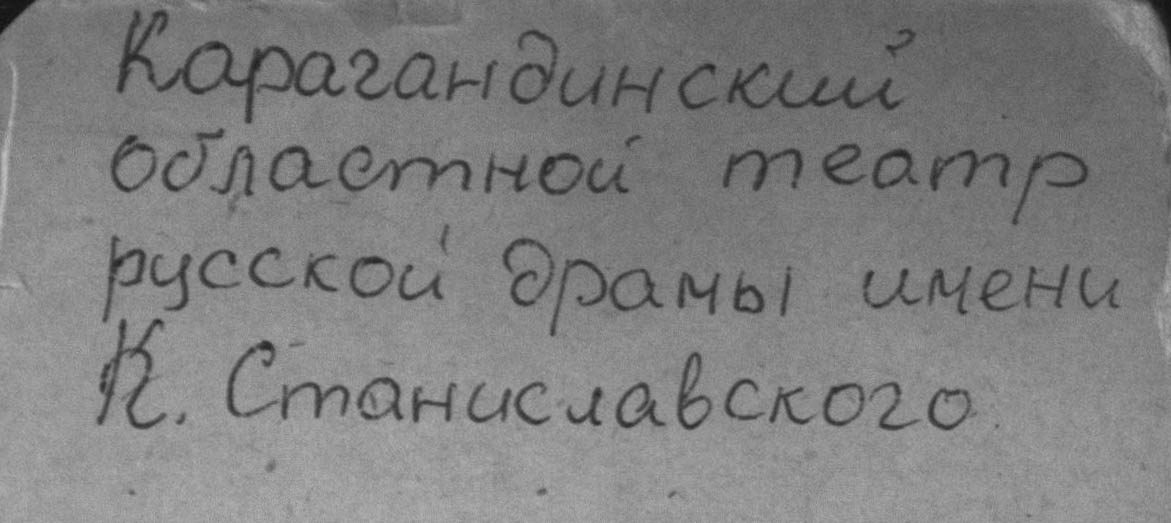 Карагандинский
областной театр
русской драмы имени
К. Станиславского.